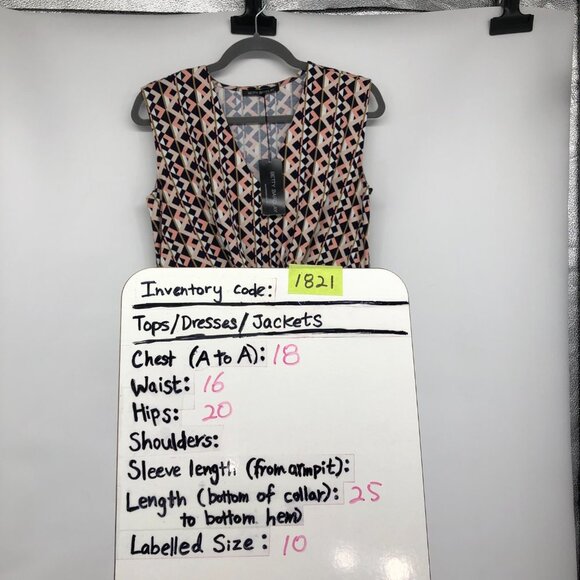 BETTY BARCLAY
Inventory code: 1821
Tops/Dresses/Jackets
Chest (A to A): 18
Waist: 16
Hips: 20
Shoulders:
Sleeve length (from armpit):
Length (bottom of collar): 25
to bottom hem)
Labelled Size: 10